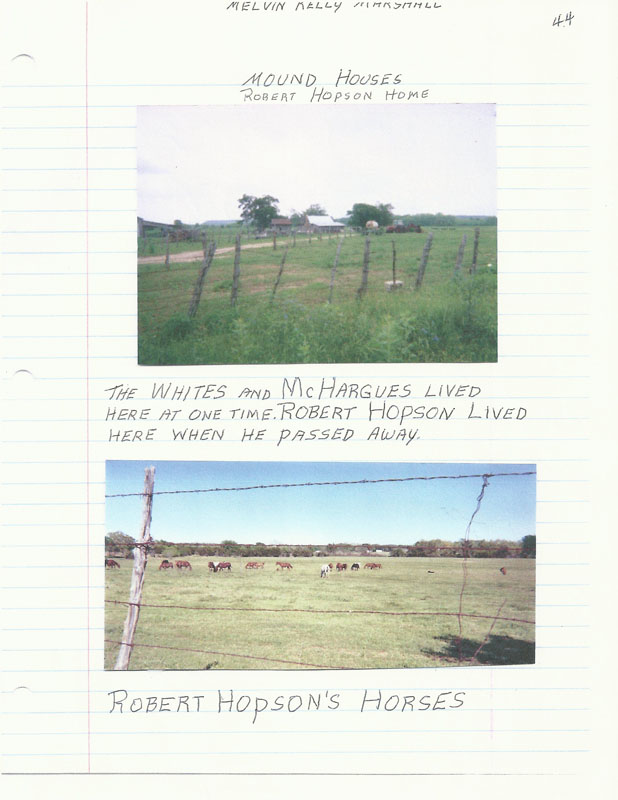 MELVIN KELLY MARSHALL
44
MOUND HOUSES
ROBERT HOPSON HOME
THE WHITES AND MCHARGUES LIVED
HERE AT ONE TIME. ROBERT HOPSON LIVED
HERE WHEN HE PASSED AWAY.
ROBERT HOPSON'S HORSES